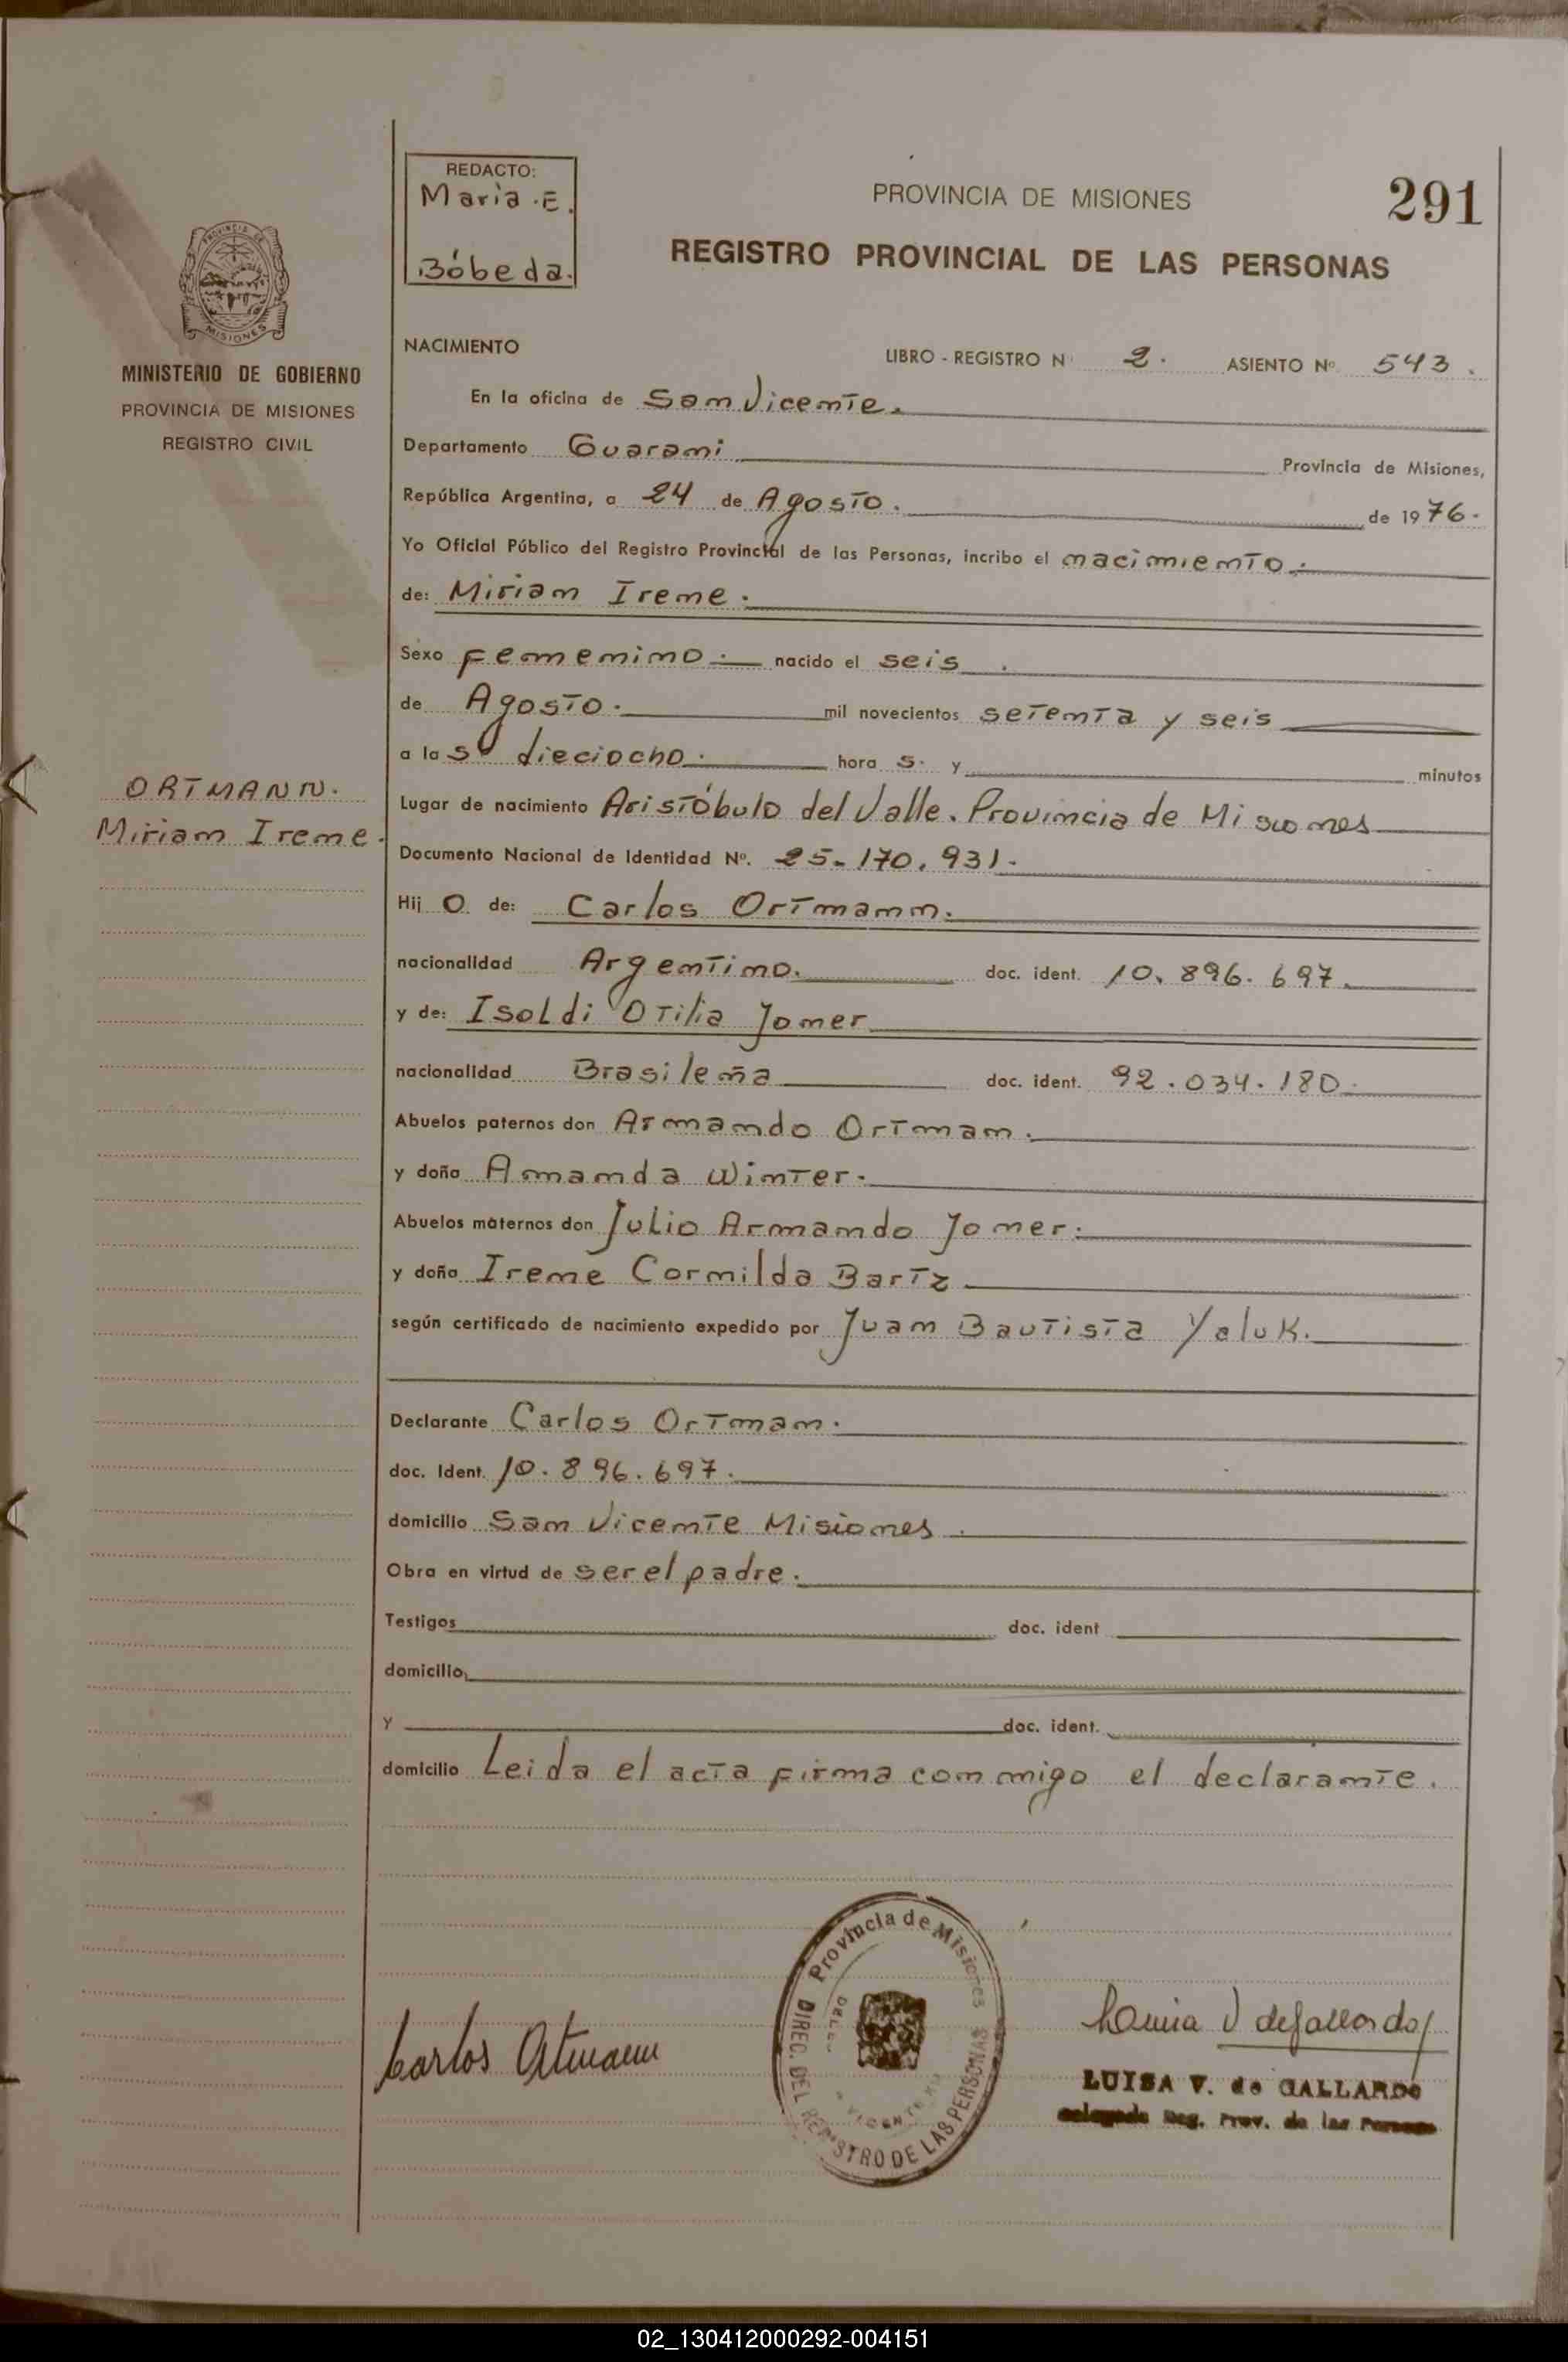 REDACTO:
Maria .E.
Bóbeda.
PROVINCIA DE MISIONES
291
REGISTRO PROVINCIAL DE LAS PERSONAS
PROVINCIA DE
MISIONES
MINISTERIO DE GOBIERNO
PROVINCIA DE MISIONES
REGISTRO CIVIL
ORTMANN.
Miriam Irene.
NACIMIENTO
LIBRO - REGISTRO N 2. ASIENTO Nº 543.
En la oficina de San Vicente.
Departamento Guarani Provincia de Misiones,
República Argentina, a 24 de Agosto. de 1976.
Yo Oficial Público del Registro Provincial de las Personas, incribo el nacimiento.
de: Miriam Irene.
Sexo Femenino. nacido el seis.
de Agosto. mil novecientos setenta y seis
a la s dieciocho. hora s. y minutos
Lugar de nacimiento Aristóbulo del Valle. Provincia de Misiones
Documento Nacional de Identidad Nº. 25.170.931.
Hij o de: Carlos Ortmann.
nacionalidad Argentino. doc. ident. 10.896.697.
y de: Isoldi Otilia Jomer
nacionalidad Brasileña doc. ident. 92.034.180.
Abuelos paternos don Armando Ortman.
y doña Amanda Winter.
Abuelos maternos don Julio Armando Jomer.
y doña Irene Cormilda Bartz
según certificado de nacimiento expedido por Juan Bautista Yaluk.
Declarante Carlos Ortman.
doc. Ident. 10.896.697.
domicilio San Vicente Misiones.
Obra en virtud de ser el padre.
Testigos doc. ident
domicilio
y doc. ident.
domicilio Leida el acta firma conmigo el declarante.
Provincia de Misiones
DIREC. DEL REGISTRO DE LAS PERSONAS
Carlos Ortmann
Luisa V de Gallardo
LUISA V. de GALLARDO
Delegada Reg. Prov. de las Personas
02_130412000292-004151